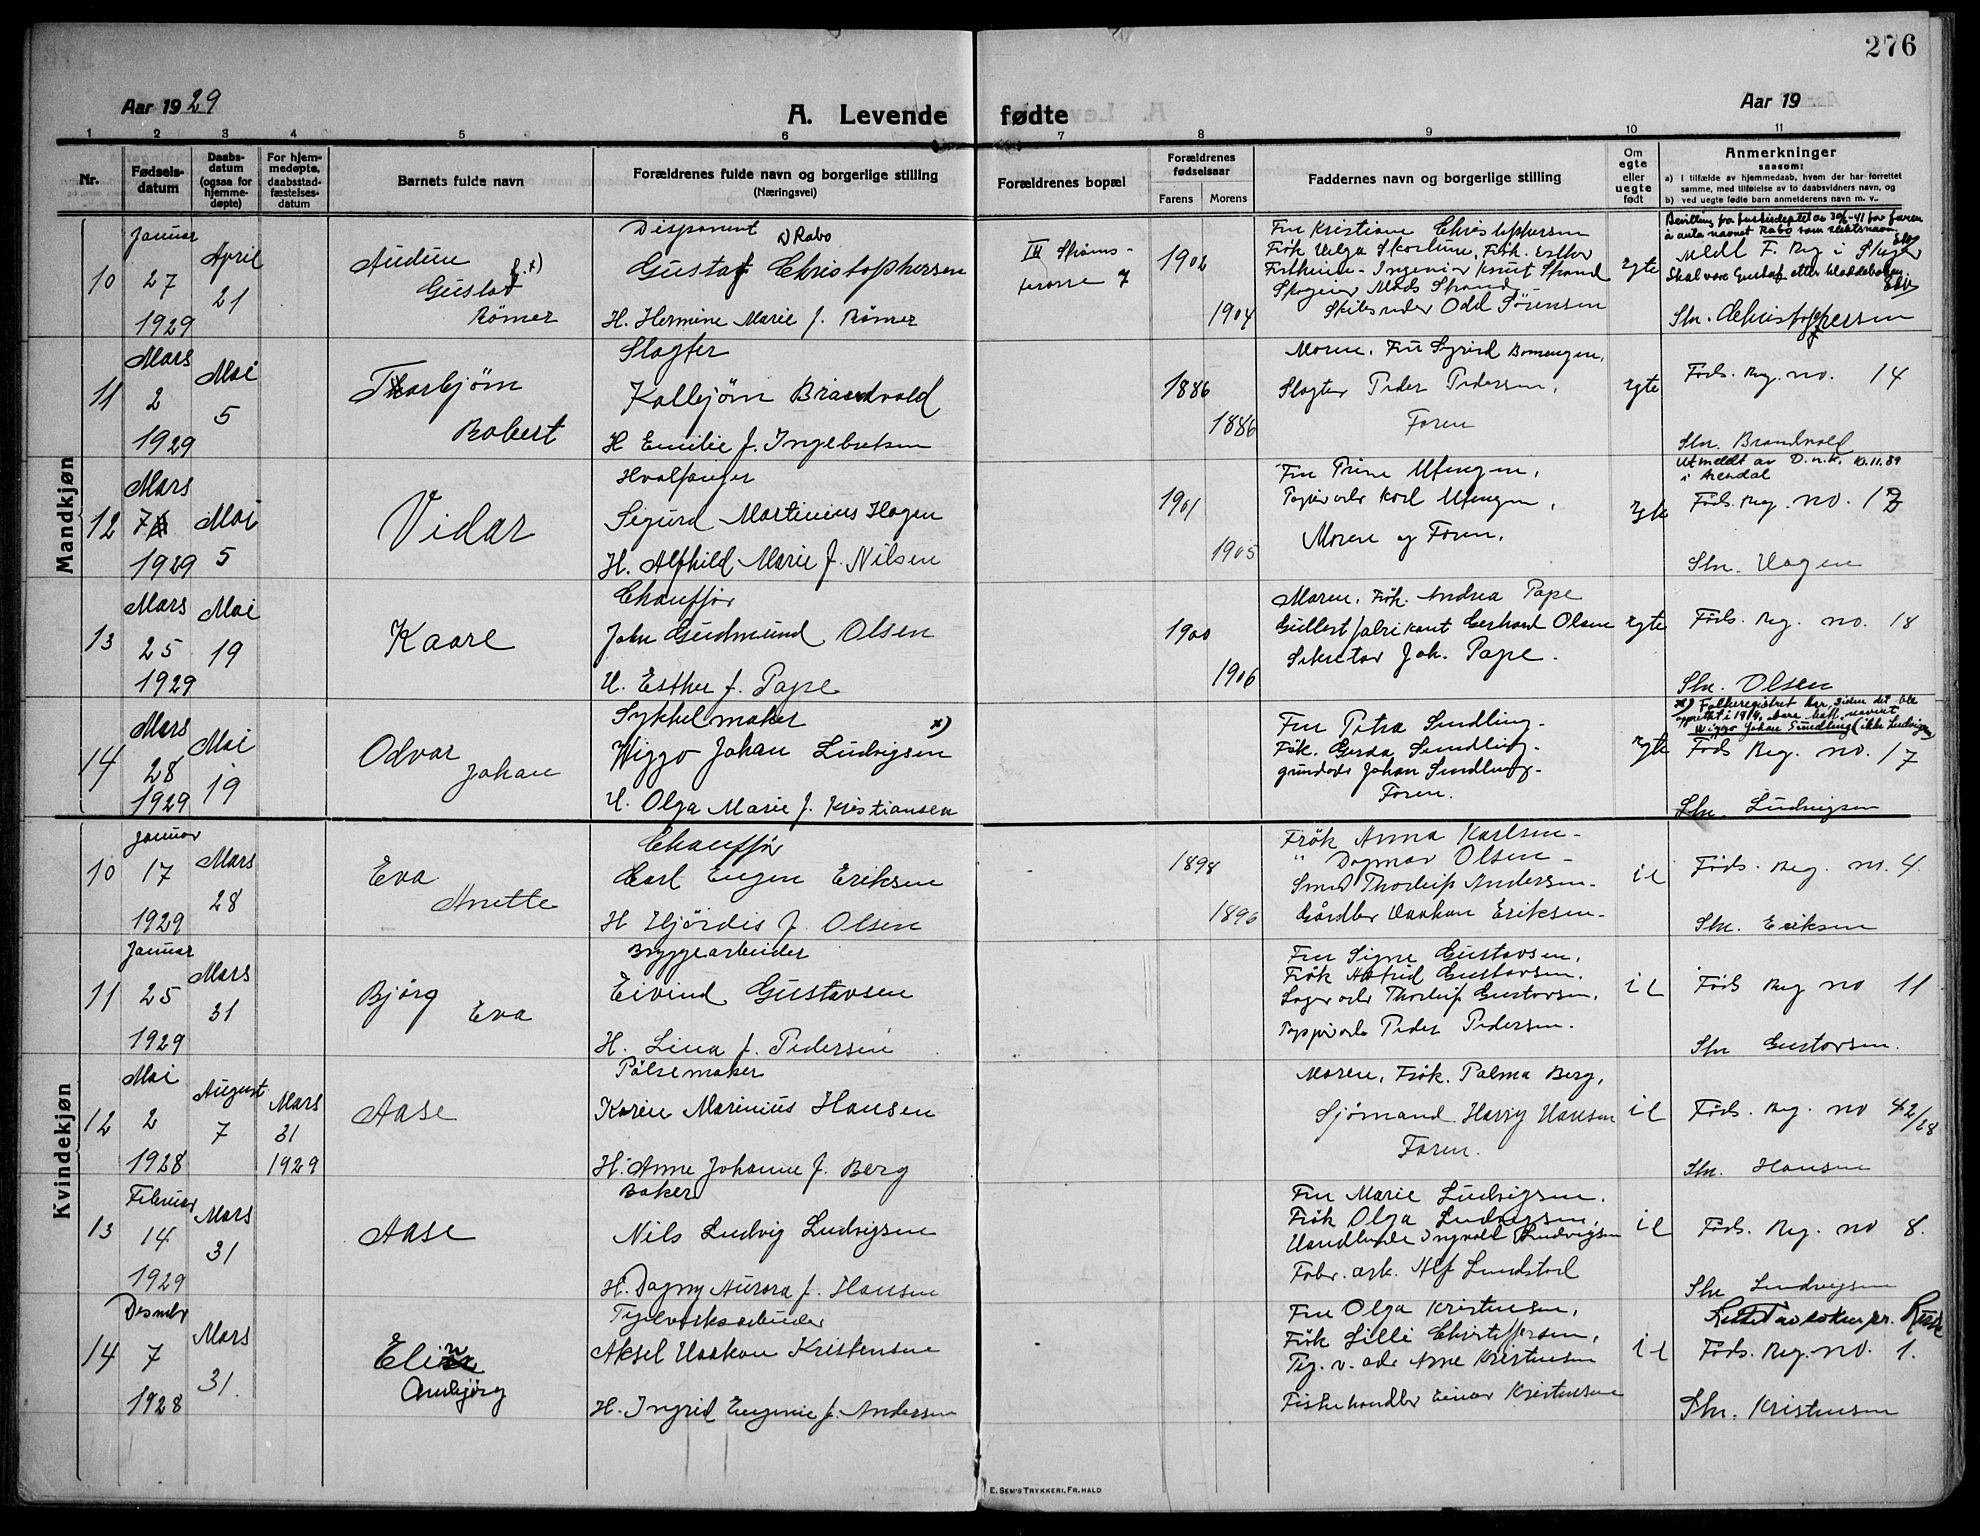 276
Aar 1929
A. Levende fødte
Aar 19
1 2 3 4 5 6 7 8 9 10 11
Nr.
Fødsels-
datum
Daabs-
datum
(ogsaa for
hjemme-
døpte)
For hjem-
medøpte,
daabsstad-
fæstelses-
datum
Barnets fulde navn
Forældrenes fulde navn og borgerlige stilling
(Næringsvei)
Forældrenes bopæl
Forældrenes
fødselsaar
Farens Morens
Faddernes navn og borgerlige stilling
Om
egte
eller
uegte
født
Anmerkninger
saasom:
a) I tilfælde av hjemmedaab, hvem der har forrettet
samme, med tilføielse av to daabsvidners navn, og
b) ved uegte fødte barn anmelderens navn m. v.
Mandkjøn
10
Januar
27
1929
April
21
Audun
Gustaf
Rømer
Disponent
Rabo
Gustaf Christophersen
H. Hermine Marie f. Rømer
1902
1904
Fru Kristiane Christophersen
Ingeniør Knut Strand
Mads Strand
Odd Sørensen
egte
å anta navnet Rabo som slektsnavn.
Skal være Gustaf etter kladdeboken
Shr. Christophersen
11
Mars
2
1929
Mai
5
Thorbjørn
Robert
Slagter
Kolbjørn Brandvold
H Emilie f. Ingebretsen
1886
1886
Moren, Fru Sigrid Bomengen,
Slagter Peder Pedersen,
Faren
egte
Føds. Reg. no. 14
Shr. Brandvold
12
Mars
7
1929
Mai
5
Vidar
Hvalfanger
Sigurd Martinius Hagen
H. Alfhild Marie f. Nilsen
1901
1905
Moren og Faren.
egte
Utmeldt av D.n.k. 10.11.89
i Arendal
Føds. Reg. no. 12
Shr. Hagen
13
Mars
25
1929
Mai
19
Kaare
Chauffør
John Gudmund Olsen
H. Esther f. Pape
1900
1906
Moren, Frøk. Andrea Pape
Gullistfabrikant Gerhard Olsen
Sekretær Joh. Pape.
egte
Føds. Reg. no. 18
Shr. Olsen
14
Mars
28
1929
Mai
19
Odvar
Johan
Sykkelmaker
x)
Wiggo Johan Ludvigsen
H. Olga Marie f. Kristiansen
Fru Petra Sundling-
Frøk. Gerda Sundling-
Johan Sundling-
Faren.
egte
x) Folkeregistret har, siden det ble
opprettet i 1914, bare hatt navnet
Wiggo Johan Sundling (ikke Ludvigsen)
Føds Reg. no. 17
Shr. Ludvigsen
Kvindekjøn
10
Januar
17
1929
Mars
28
Eva
Anette
Chauffør
Carl Eugen Eriksen
H Hjørdis f. Olsen
1898
1896
Frøk Anna Karlsen-
" Dagmar Olsen-
Smed Thorleif Andersen-
Gårdbr Haakon Eriksen-
Føds. Reg. no. 4.
Shr. Eriksen
11
Januar
25
1929
Mars
31
Bjørg
Eva
Bryggearbeider
Eivind Gustavsen
H. Lina f. Pedersen
Fru Signe Gustavsen,
Frøk Astrid Gustavsen.
Lagerarb Thorleif Gustavsen,
Papirarb Peder Pedersen.
Føds Reg no 11
Shr Gustavsen.
12
Mai
2
1928
August
7
Mars
31
1929
Aase
Pølsemaker
Karen Marinius Hansen
H. Anne Johanne f. Berg
Moren, Frøk. Palma Berg,
Sjømand Harry Hansen
Faren.
Føds. Reg. no 42/28
Shr. Hansen
13
Februar
14
1929
Mars
31
Aase
Baker
Nils Ludvig Ludvigsen
H. Dagny Aurora f. Hansen
Fru Marie Ludvigsen.
Frøk Olga Ludvigsen,
Ingvald Ludvigsen
Fabr. arb. Alf Lundstad
Føds. Reg. no 8.
Shr Ludvigsen
14
Desmbr
7
1928
Mars
31.
Elin
Annbjørg
Teglverksarbeider
Aksel Haakon Kristensen
H. Ingrid Eugenie f. Andersen
Fru Olga Kristensen,
Frøk Lilli Christoffersen,
Teg. v. arb Arne Kristensen
Fiskehandler Einar Kristensen
Rettet av sokneprest
Føds. Reg. no. 1.
Shr. Kristensen
E. SEM'S TRYKKERI, FR.HALD